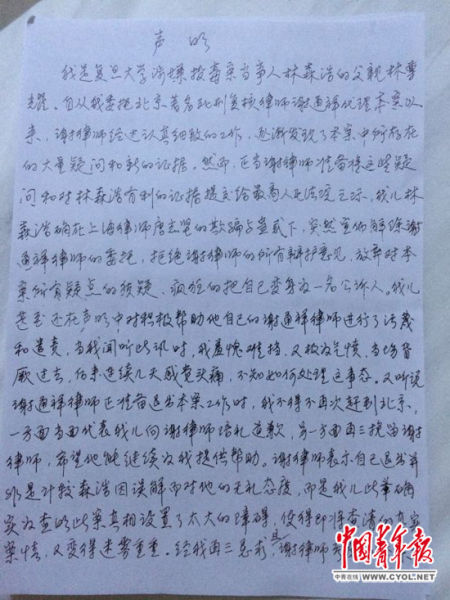 声 明
我是复旦大学涉嫌投毒案当事人林森浩的父亲林尊
耀。自从我委托北京著名死刑复核律师谢通祥代理本案以
来，谢律师经过认真细致的工作，逐渐发现了本案中所存在
的大量疑问和新的证据。然而，正当谢律师准备将这些疑
问和对林森浩有利的证据提交给最高人民法院之际，我儿林
森浩确在上海律师唐志坚的欺骗与蛊惑下，突然宣佈解除谢
通祥律师的委托，拒绝谢律师的所有辩护意见，放弃对本
案所有疑点的质疑、疯狂的把自己变身为一名公诉人。我儿
甚至还在声明中对积极帮助他自己的谢通祥律师进行了污蔑
和遣责，当我闻听此讯时，我羞愧难挡，又极为气愤，当场昏
厥过去，后来连续几天感觉头痛，不知如何处理这事态。又听说
谢通祥律师正准备退出本案工作时，我不得不再次赶到北京，
一方面当面代表我儿向谢律师赔礼道歉，另一方面再三挽留谢
律师，希望他能继续为我提供帮助。谢律师表示自己退出并
非是计较森浩因误解而对他的无礼态度，而是我儿此举确
实为查明此案真相设置了太大的障碍，使得即将查清的真实
案情，又变得迷雾重重。经我再三恳求，且谢律师
中国青年报
中青在线 WWW.CYOL.NET